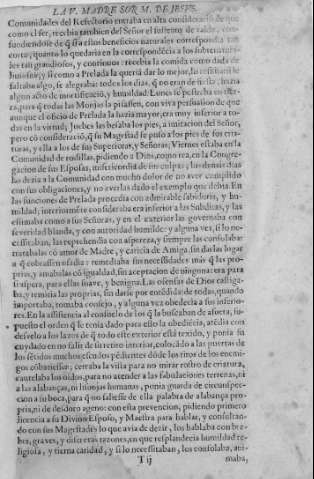 LA V. MADRE SOR M. DE JESVS.
Comunidades del Refectorio entraba en alta consideracion de que
como el ser, recebia tambien del Señor el sustento de
fundiendose de q̃ si a estos beneficios naturales correspondia tan
corta, quanto lo quedaria en la correspondencia a los
tales tan grandiosos, y continuos: recebia la comida como dada de
limosna; y si como a Prelada la queria dar lo mejor, la
faltaba algo, se alegraba: todos los dias, q̃ no eran de fiesta, hazia
algun acto de mortificacion, y humildad: Lunes se postraba en
ra, para q̃ todas las Monjas la pisassen, con viva persuasion de que
aunque el oficio de Prelada la hazia mayor, era muy inferior a to-
das en la virtud; Jueves les besaba los pies, a imitacion del Señor,
pero cõ consideraciõ, q̃ su Magestad se puso a los pies de sus cria-
turas, y ella a los de sus Superioras, y Señoras; Viernes estaba en la
Comunidad de rodillas, pidiendo a Dios, como rea, en la Congre-
gacion de sus Esposas, misericordia de sus culpas; los demas dias
la dezia a la Comunidad con mucho dolor de no aver cumplido
con sus obligaciones, y no averlas dado el exemplo que debia. En
las funciones de Prelada procedia con admirable sabiduria, y hu-
mildad; interiormente consideraba era inferior a las Subditas, y las
estimaba como a sus Señoras, y en el exterior las governaba con
severidad blanda, y con autoridad humilde: y alguna vez, si lo ne-
cessitaban, las reprehendia con aspereza, y siempre las consolaba:
tratabalas cõ amor de Madre, y caricia de Amiga, sin darlas lugar
a q̃ cobrassen osadia: remediaba sus necessidades mas q̃ las pro-
prias, y amabalas cõ igualdad, sin aceptacion de ninguna: era para
si aspera, para ellas suave, y benigna. Las ofensas de Dios castiga-
ba, y remitia las proprias, sin darse por entẽdida de todas, quando
importaba, tomaba consejo, y alguna vez obedecia a sus inferio-
res. En la assistencia al consuelo de los q̃ la buscaban de afuera,
puesto el orden q̃ se tenia dado para ello la obediẽcia, atẽdia con
desvelo a los lazos de q̃ todo este exterior està texido, y ponia su
cuydado en no salir de su retiro interior, colocãdo a las puertas de
los sẽtidos muchos
gos cerraba la vista para no mirar rostro de criatura,
cautelaba los oidos, para no atender a las fabulaciones terrenas, ni
a las alabanças, ni lisonjas humanas, ponia guarda de circunspec-
cion a su boca, para q̃ no saliesse de ella palabra de alabança pro-
pria, ni de desdoro ageno: con esta prevencion, pidiendo primero
licencia a su Divino Esposo, y Maestra para hablar, y consultan-
do con sus Magestades lo que avia de dezir, los hablaba con bre-
bes, graves, y discretas razones, en que resplandecia humildad re-
ligiosa, y tierna caridad, y si lo necessitaban, los consolaba, ani-
T ij
maba,